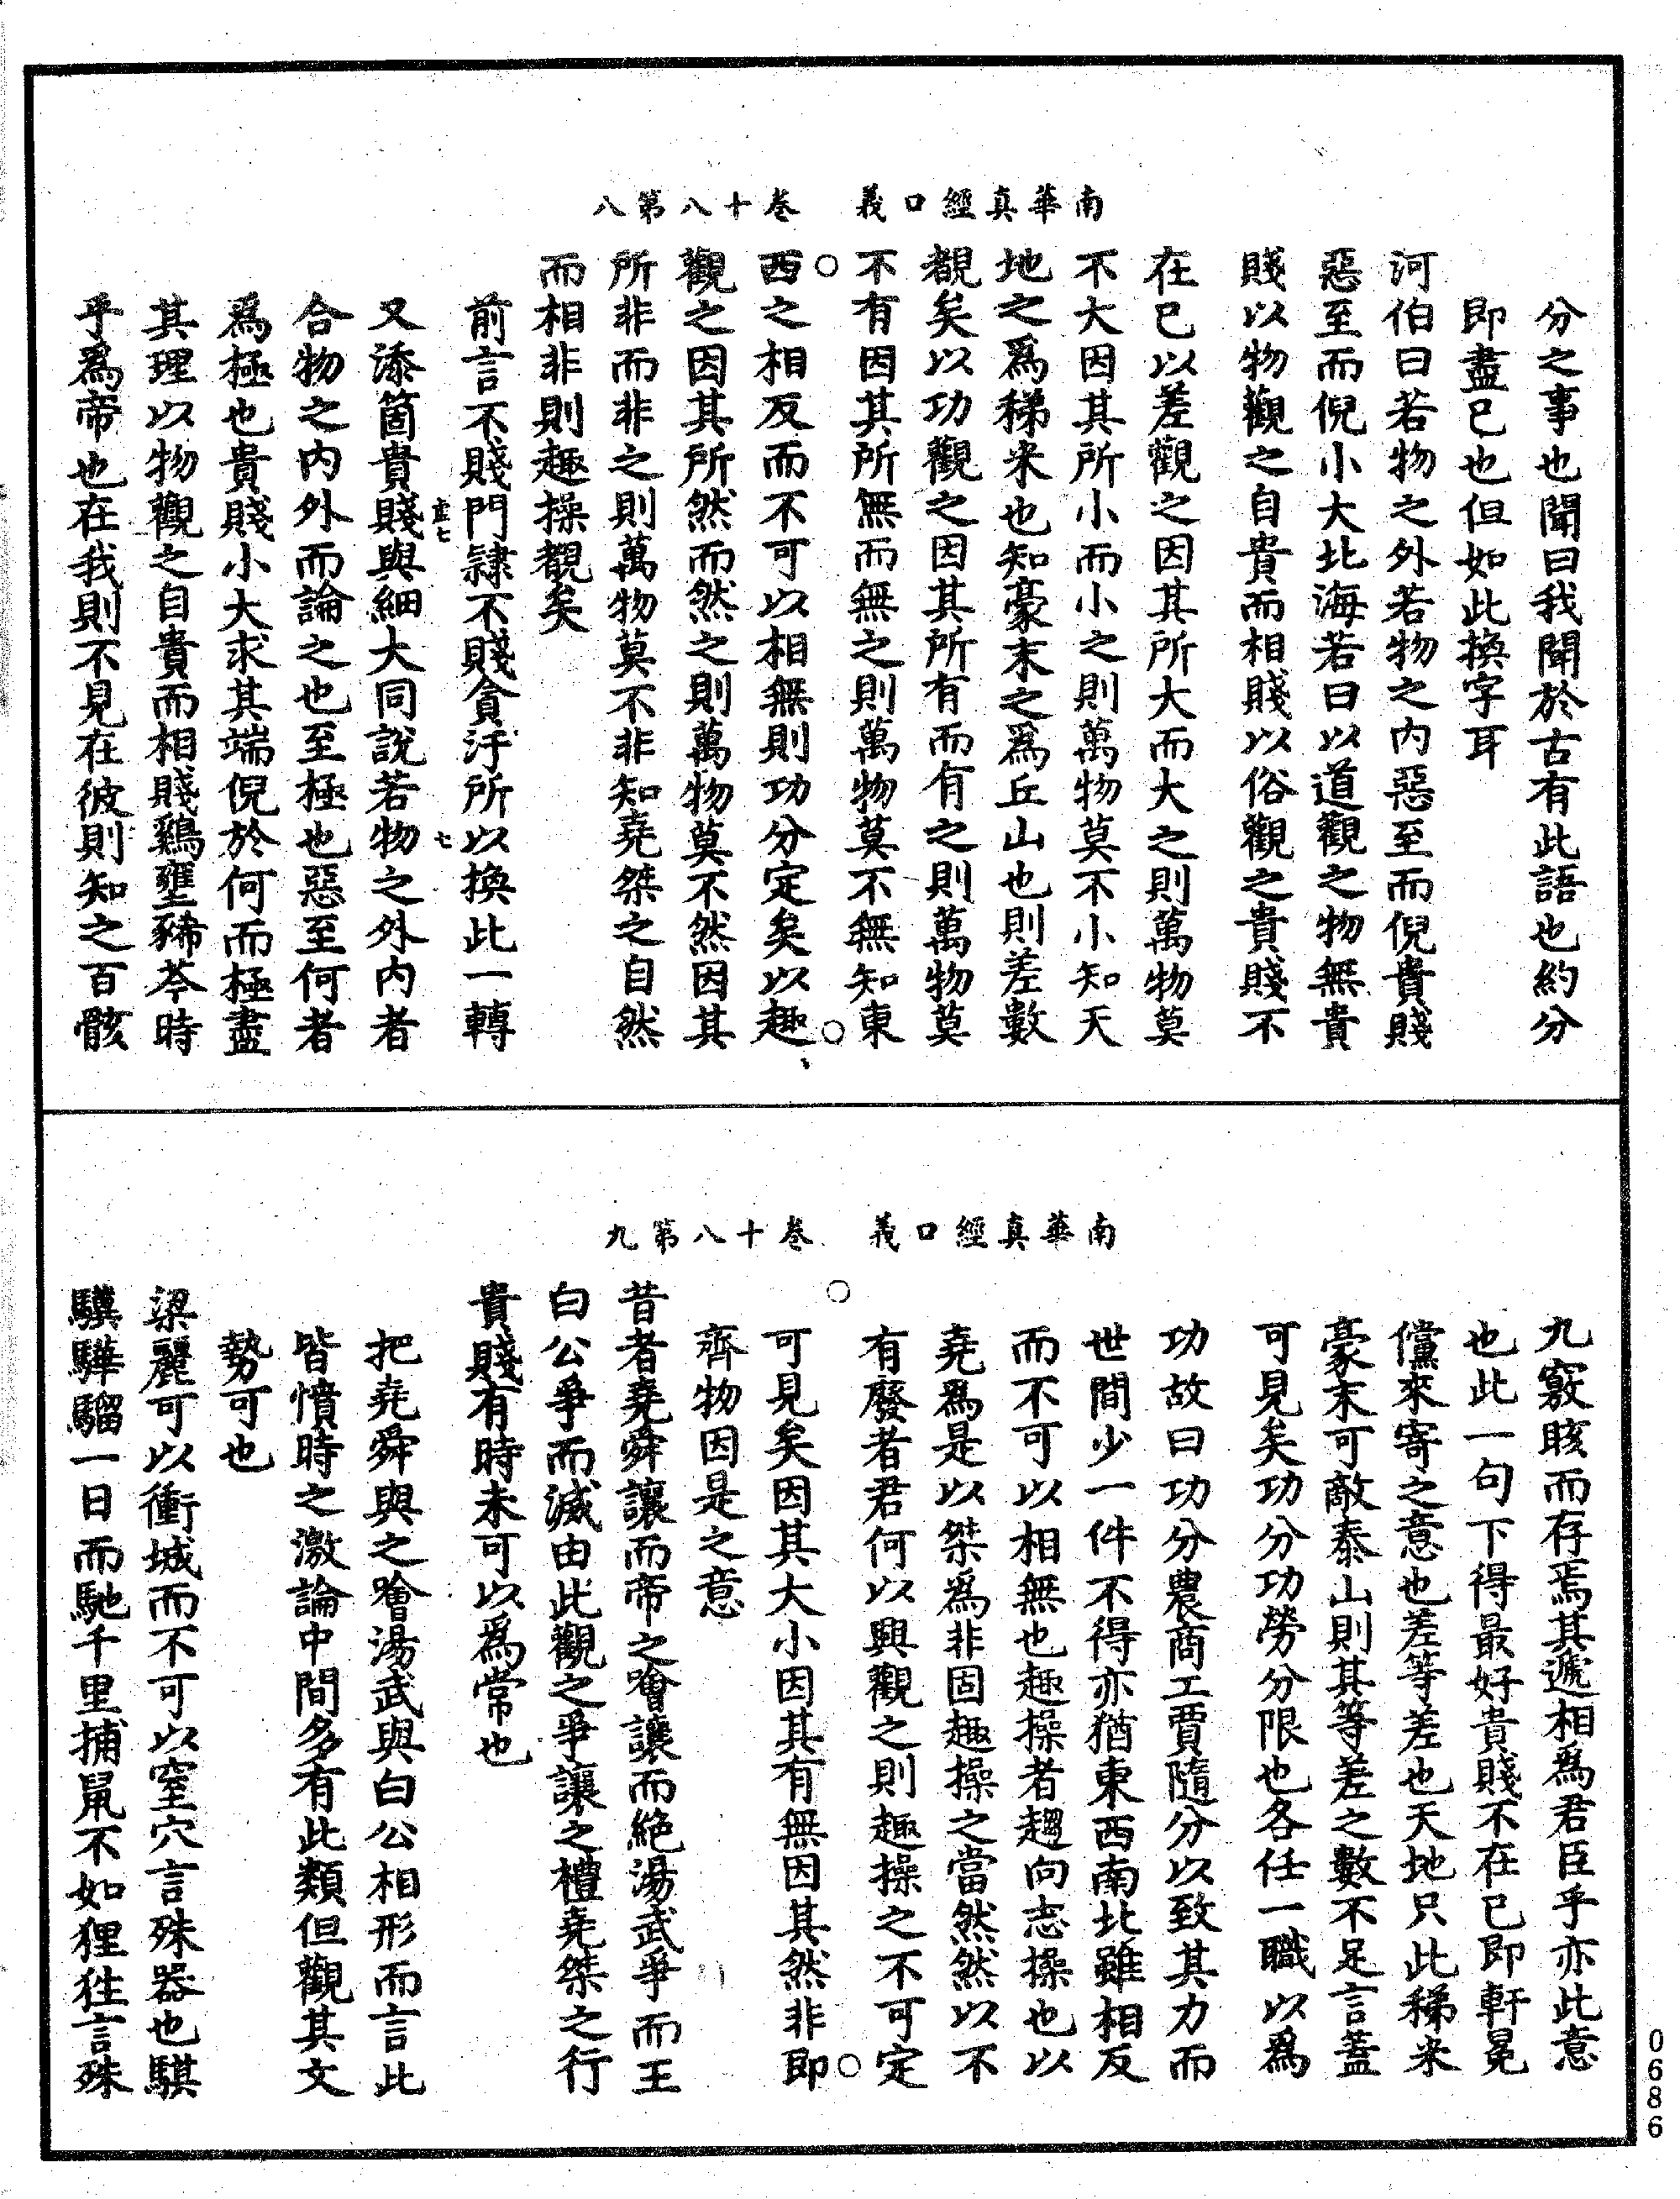 南華真經口義　卷十八第八
分之事也聞曰我聞於古有此語也約分
即盡已也但如此換字耳
河伯曰若物之外若物之内惡至而倪貴賤
惡至而倪小大北海若曰以道觀之物無貴
賤以物觀之自貴而相賤以俗觀之貴賤不
在已以差觀之因其所大而大之則萬物莫
不大因其所小而小之則萬物莫不小知天
地之爲稊米也知豪末之爲丘山也則差數
覩矣以功觀之因其所有而有之則萬物莫
不有因其所無而無之則萬物莫不無知東
西之相反而不可以相無則功分定矣以趣
觀之因其所然而然之則萬物莫不然因其
所非而非之則萬物莫不非知堯桀之自然
而相非則趣操覩矣
前言不賤門隷不賤貪汙所以換此一轉
虛七
七
又添箇貴賤與細大同說若物之外内者
合物之内外而論之也至極也惡至何者
爲極也貴賤小大求其端倪於何而極盡
其理以物觀之自貴而相賤鷄壅豨苓時
乎爲帝也在我則不見在彼則知之百骸
南華真經口義　卷十八第九
九竅賅而存焉其遞相爲君臣乎亦此意
也此一句下得最好貴賤不在已即軒冕
儻來寄之意也差等差也天地只此稊米
豪末可敵泰山則其等差之數不足言蓋
可見矣功分功勞分限也各任一職以爲
功故曰功分農商工賈隨分以致其力而
世間少一件不得亦猶東西南北雖相反
而不可以相無也趣操者趨向志操也以
堯爲是以桀爲非固趣操之當然然以不
有廢者君何以興觀之則趣操之不可定
可見矣因其大小因其有無因其然非即
齊物因是之意
昔者堯舜讓而帝之噲讓而絕湯武爭而王
白公爭而滅由此觀之爭讓之禮堯桀之行
貴賤有時未可以爲常也
把堯舜與之噲湯武與白公相形而言此
皆憤時之激論中間多有此類但觀其文
勢可也
梁麗可以衝城而不可以窒穴言殊器也騏
驥驊騮一日而馳千里捕鼠不如狸狌言殊
0686